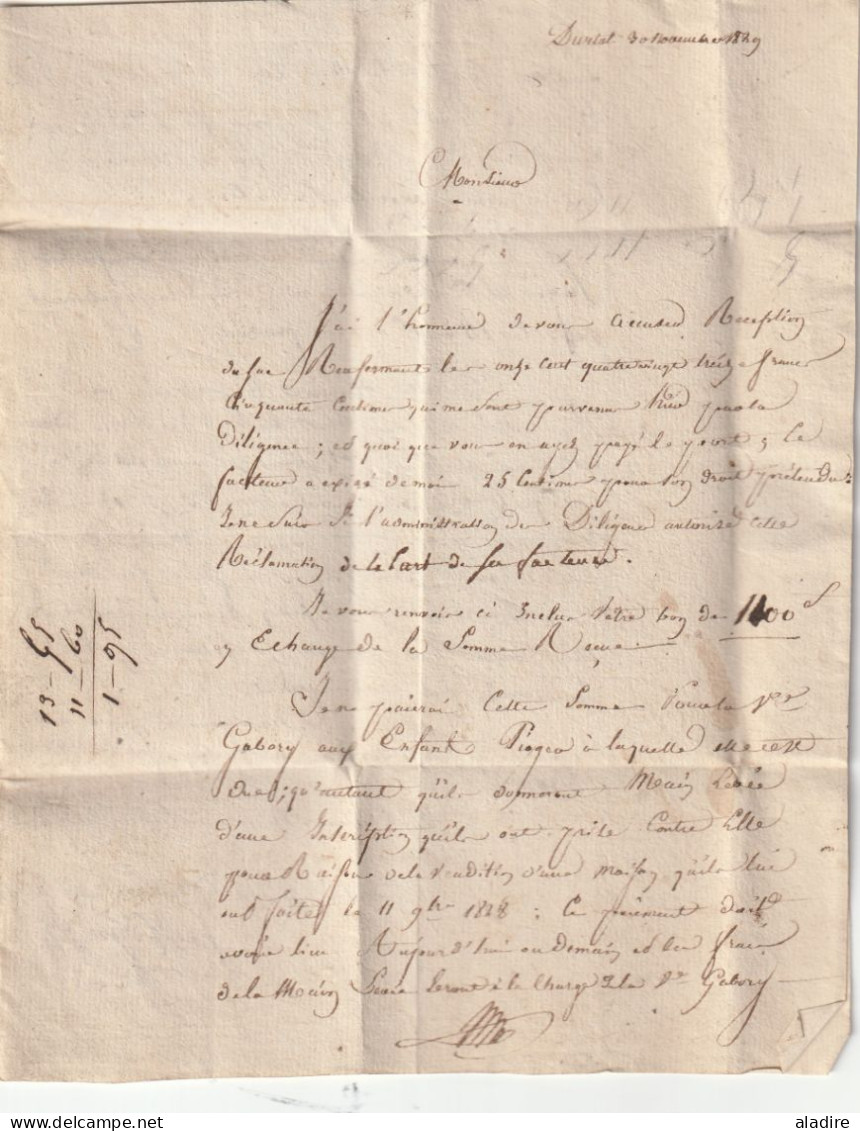 Durtal 30 Novembre 1829
Monsieur
J'ai l'honneur de vous accuser Reception
du sac Renfermant les onze cent quatre vingt treize francs
Cinquante Centimes qui me sont parvenus hier par la
Diligence ; et quoi que vous en ayez payé le port, le
facteur a exigé de moi 25 Centimes pour son droit prétendu ;
Je ne sais Si l'administration des Diligences autorise cette
Réclamation de la Part de ses facteurs.
Je vous renvois ci Inclus Votre bon de 1100 f
En Echange de la Somme Reçue.
Je ne paierai Cette Somme Pour la Ve
Gabory aux Enfants à laquelle elle est
due, qu'autant qu'ils donneront Main Levée
d'une Inscription qu'ils ont prise Contre Elle
pour Raison de la Vendition d'une maison qu'ils lui
ont faite le 11 9bre 1828 : Ce paiement doit
avoir lieu Aujourd'hui ou Demain et les frais
de la Main Levée Seront à la Charge de la Ve Gabory
13 - 55
11 - 60
1 - 95
aladire
© delcampe.net